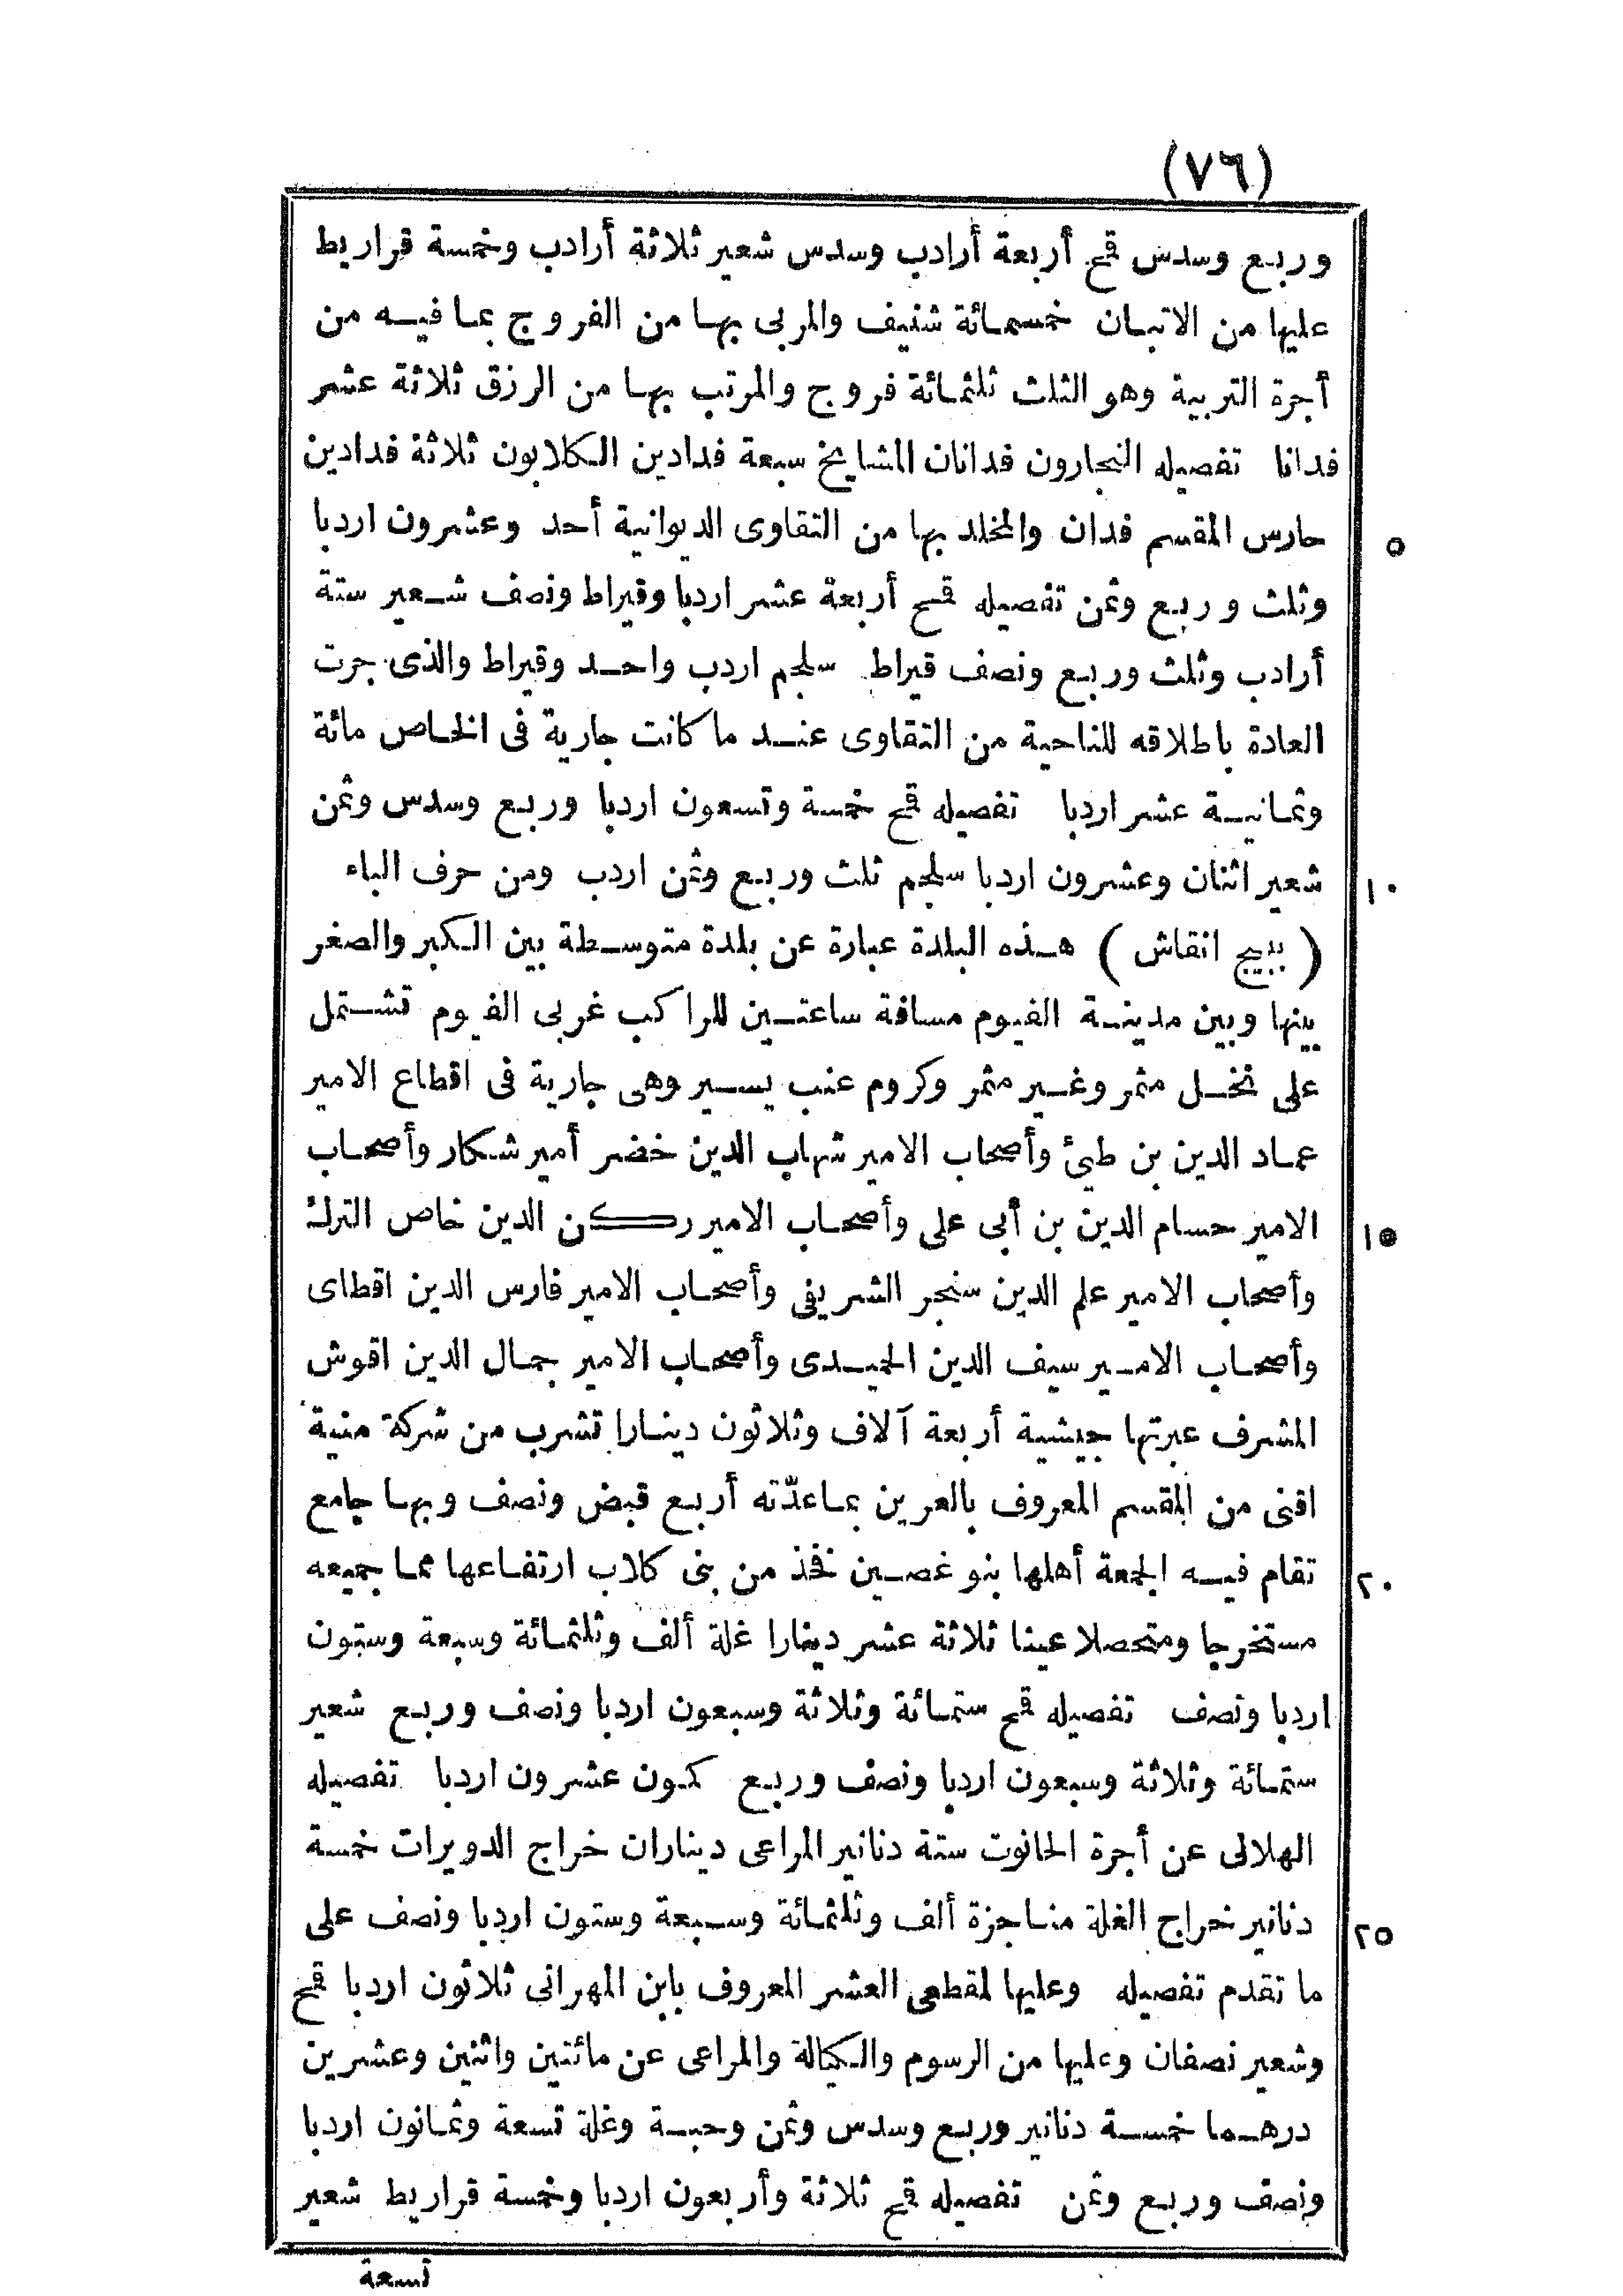 (٧٦)
وربع وسدس قمح أربعة أرادب وسدس شعير ثلاثة أرادب وخمسة قراريط
عليها من الاتبان خمسمائة شنيف والمربى بها من الفروج بما فيه من
أجرة التربية وهو الثلث ثلثمائة فروج والمرتب بها من الرزق ثلاثة عشر
فدانا تفصيله النجارون فدانان المشايخ سبعة فدادين الكلابون ثلاثة فدادين
حارس المقسم فدان والمخلد بها من التقاوى الديوانية أحد وعشرون اردبا
٥
وثلث وربع وثمن تفصيله قمح أربعة عشر اردبا وقيراط ونصف شعير ستة
أرادب وثلث وربع ونصف قيراط سلجم اردب واحد وقيراط والذى جرت
العادة باطلاقه للناحية من التقاوى عند ما كانت جارية فى الخاص مائة
وثمانية عشر اردبا تفصيله قمح خمسة وتسعون اردبا وربع وسدس وثمن
شعير اثنان وعشرون اردبا سلجم ثلث وربع وثمن اردب ومن حرف الباء
١٠
(ببيج انقاش) هذه البلدة عبارة عن بلدة متوسطة بين الكبر والصغر
بينها وبين مدينة الفيوم مسافة ساعتين للراكب غربى الفيوم تشتمل
على نخل مثمر وغير مثمر وكروم عنب يسير وهى جارية فى اقطاع الامير
عماد الدين بن طيئ وأصحاب الامير شهاب الدين خضر أمير شكار وأصحاب
الامير حسام الدين بن أبى على وأصحاب الامير ركن الدين خاص الترك
١٥
وأصحاب الامير علم الدين سنجر الشريفى وأصحاب الامير فارس الدين اقطاى
وأصحاب الامير سيف الدين الحميدى وأصحاب الامير جمال الدين اقوش
المشرف عبرتها جيشية أربعة آلاف وثلاثون دينارا تشرب من شركة منية
اقنى من المقسم المعروف بالعرين بما عدّته أربع قبض ونصف وبها جامع
تقام فيه الجمعة أهلها بنو غصين فخذ من بنى كلاب ارتفاعها مما جميعه
٢٠
مستخرجا ومتحصلا عينا ثلاثة عشر دينارا غلة ألف وثلثمائة وسبعة وستون
اردبا ونصف تفصيله قمح ستمائة وثلاثة وسبعون اردبا ونصف وربع شعير
ستمائة وثلاثة وسبعون اردبا ونصف وربع كمون عشرون اردبا تفصيله
الهلالى عن أجرة الحانوت ستة دنانير المراعى ديناران خراج الدويرات خمسة
دنانير خراج الغلة مناجزة ألف وثلثمائة وسبعة وستون اردبا ونصف على
٢٥
ما تقدم تفصيله وعليها لمقطعى العشر المعروف بابن المهرانى ثلاثون اردبا قمح
وشعير نصفان وعليها من الرسوم والكيالة والمراعى عن مائتين واثنين وعشرين
درهما خمسة دنانير وربع وسدس وثمن وحبة وغلة تسعة وثمانون اردبا
ونصف وربع وثمن تفصيله قمح ثلاثة وأربعون اردبا وخمسة قراريط شعير
تسعة